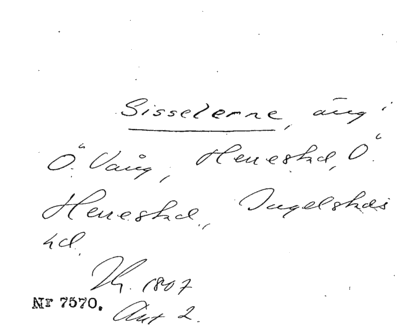 Sisselerne, äng i
Ö. Vång, Henestad, Ö.
Henestad., Ingelstads
hd.
1807
Nr 7570. Akt 2.